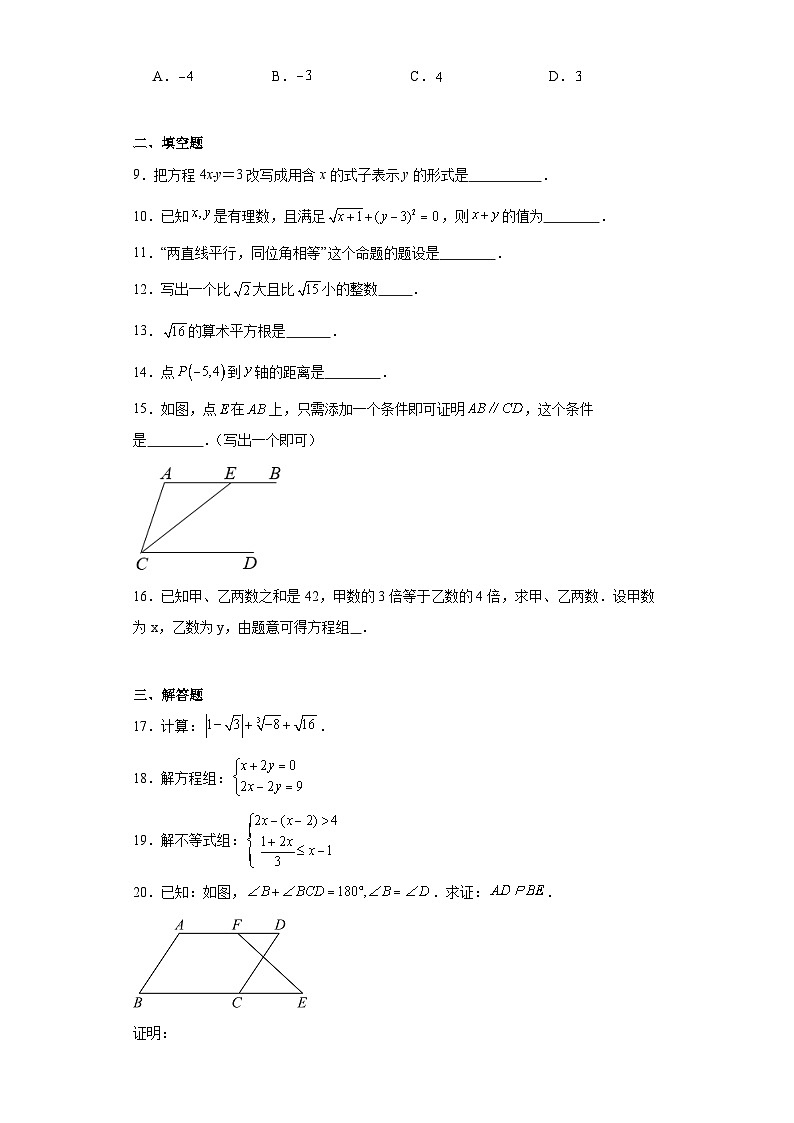 A．−4 B．−3 C．4 D．3
二、填空题
9．把方程 4x-y＝3 改写成用含 x 的式子表示 y 的形式是__________．
10．已知 x, y 是有理数，且满足 √(x+1) + (y−3)² = 0，则 x+y 的值为________．
11．“两直线平行，同位角相等”这个命题的题设是________．
12．写出一个比 √2 大且比 √15 小的整数_____．
13．√16 的算术平方根是______．
14．点 P(−5,4) 到 y 轴的距离是________．
15．如图，点 E 在 AB 上，只需添加一个条件即可证明 AB∥CD，这个条件
是________．（写出一个即可）
A E B
C D
16．已知甲、乙两数之和是 42，甲数的 3 倍等于乙数的 4 倍，求甲、乙两数．设甲数
为 x，乙数为 y，由题意可得方程组__．
三、解答题
17．计算：|1−√3| + ∛−8 + √16．
18．解方程组：{x+2y=0
2x−2y=9
19．解不等式组：{2x−(x−2)>4
(1+2x)/3 ≤ x−1
20．已知：如图，∠B+∠BCD=180°,∠B=∠D．求证：AD∥BE．
A F D
B C E
证明：